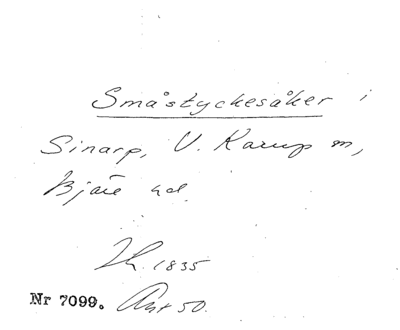 Småstyckesåker i
Sinarp, V. Karup m,
Bjäre hd.
Th. 1835
Nr 7099. Ant 50.